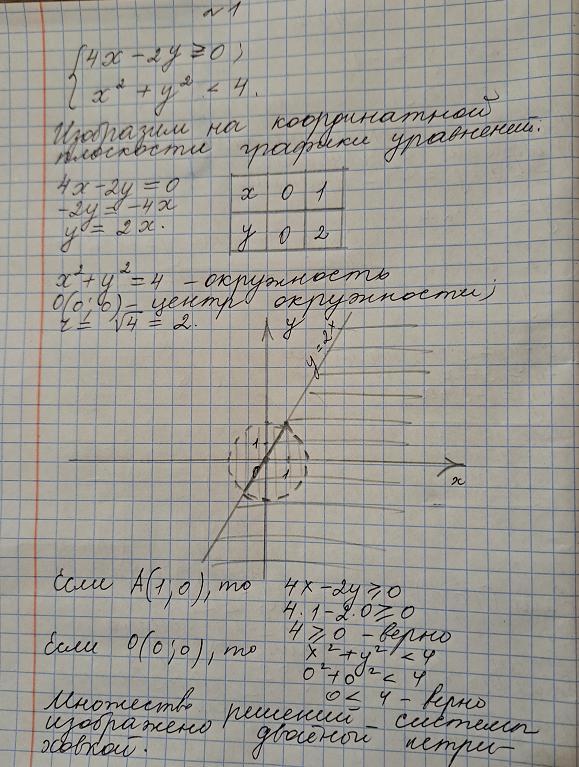 №1
4x - 2y ≥ 0;
x² + y² < 4.
Изобразим на координатной
плоскости графики уравнений.
4x - 2y = 0
-2y = -4x
y = 2x.
x 0 1
y 0 2
x² + y² = 4 - окружность
O(0; 0) - центр окружности;
r = √4 = 2.
y
y = 2x
1
0 1
x
Если A(1; 0), то 4x - 2y ≥ 0
4·1 - 2·0 ≥ 0
4 ≥ 0 - верно
Если O(0; 0), то x² + y² < 4
0² + 0² < 4
0 < 4 - верно
Множество решений системы
изображено двойной штри-
ховкой.